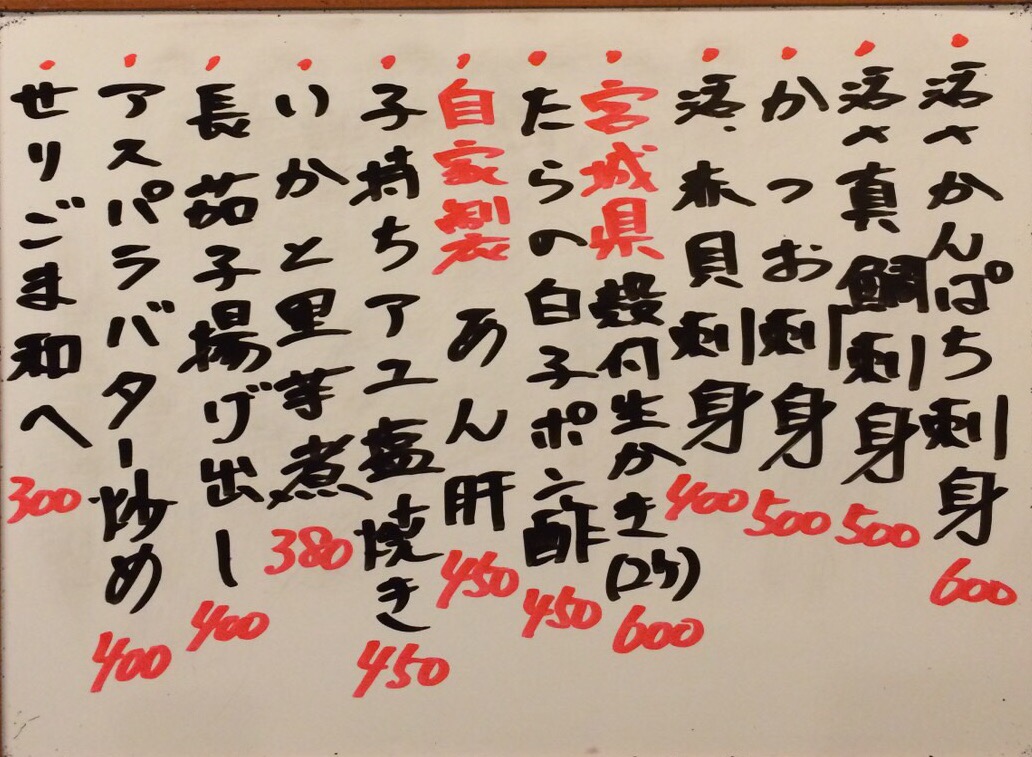 活〆かんぱち刺身 600
活〆真鯛刺身 500
かつお刺身 500
活、赤貝刺身 400
宮城県殻付生かき(2ケ) 600
たらの白子ポン酢 450
自家製あん肝 450
子持ちアユ塩焼き 450
いかと里芋煮 380
長茄子揚げ出し 400
アスパラバター炒め 400
せりごま和へ 300